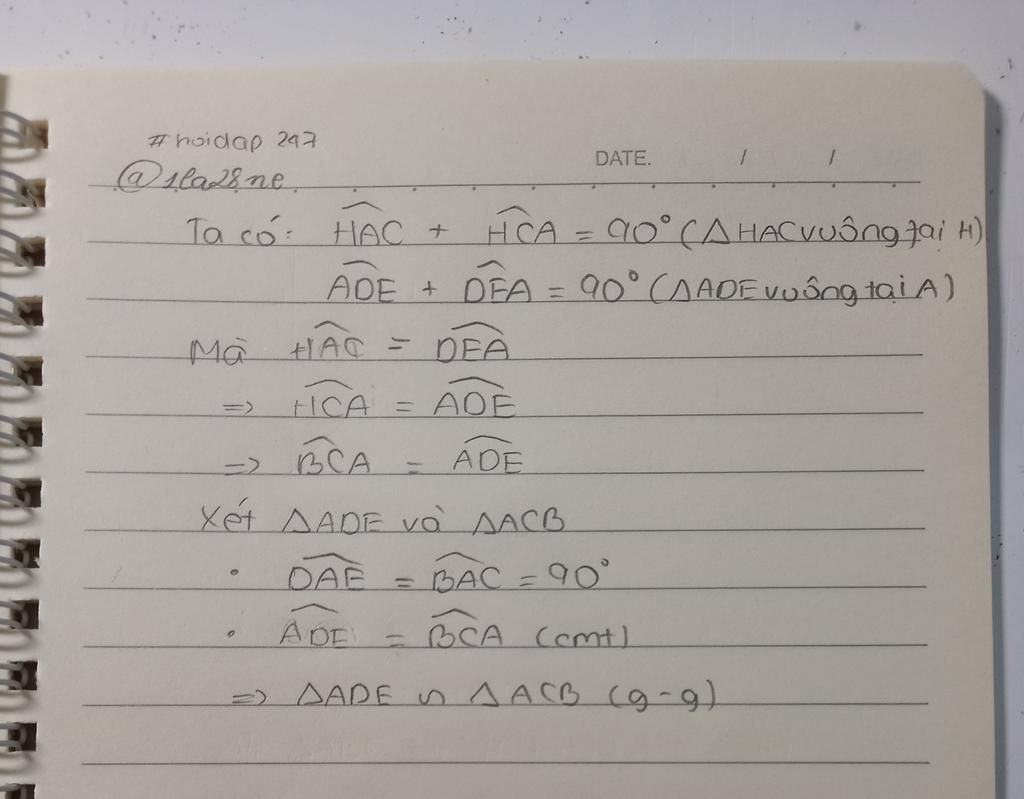 #hoidap 247
DATE. / /
@1la28ne
Ta có: \widehat{HAC} + \widehat{HCA} = 90° (ΔHAC vuông tại H)
\widehat{ADE} + \widehat{DEA} = 90° (ΔADE vuông tại A)
Mà \widehat{HAC} = \widehat{DEA}
=> \widehat{HCA} = \widehat{ADE}
=> \widehat{BCA} = \widehat{ADE}
Xét ΔADE và ΔACB
• \widehat{DAE} = \widehat{BAC} = 90°
• \widehat{ADE} = \widehat{BCA} (cmt)
=> ΔADE ∽ ΔACB (g-g)